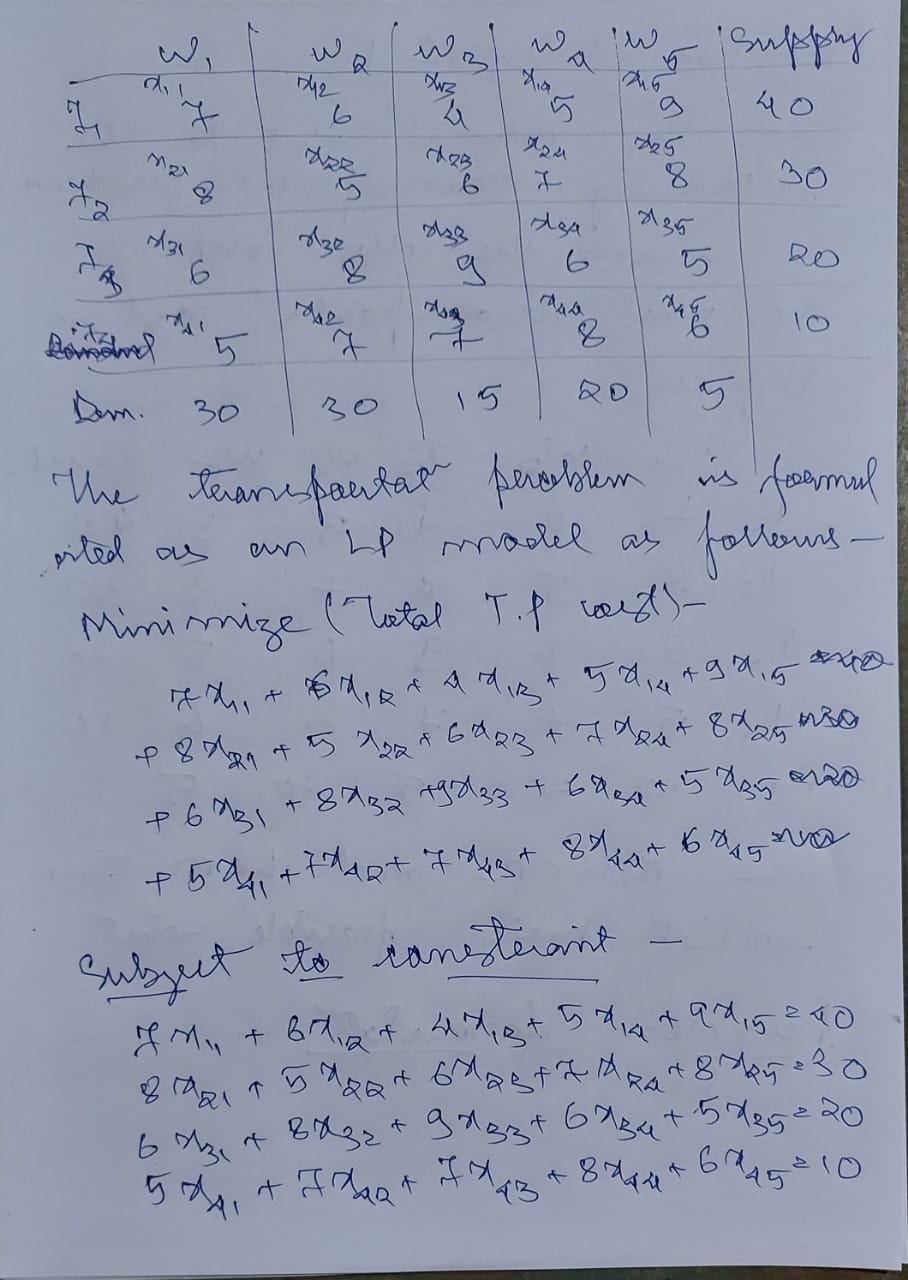 W1 W2 W3 W4 W5 Supply
x11 x12 x13 x14 x15
7 6 4 5 9 40
x21 x22 x23 x24 x25
F2 8 5 6 7 8 30
x31 x32 x33 x34 x35
6 8 9 6 5 20
x41 x42 x43 x44 x45
5 7 7 8 6 10
Dem. 30 30 15 20 5
The transportatn problem is formul
ated as an LP model as follows –
Minimize (Total T.P cost) –
7x11 + 6x12 + 4x13 + 5x14 + 9x15
+ 8x21 + 5x22 + 6x23 + 7x24 + 8x25
+ 6x31 + 8x32 + 9x33 + 6x34 + 5x35
+ 5x41 + 7x42 + 7x43 + 8x44 + 6x45
Subject to constraint –
7x11 + 6x12 + 4x13 + 5x14 + 9x15 = 40
8x21 + 5x22 + 6x23 + 7x24 + 8x25 = 30
6x31 + 8x32 + 9x33 + 6x34 + 5x35 = 20
5x41 + 7x42 + 7x43 + 8x44 + 6x45 = 10